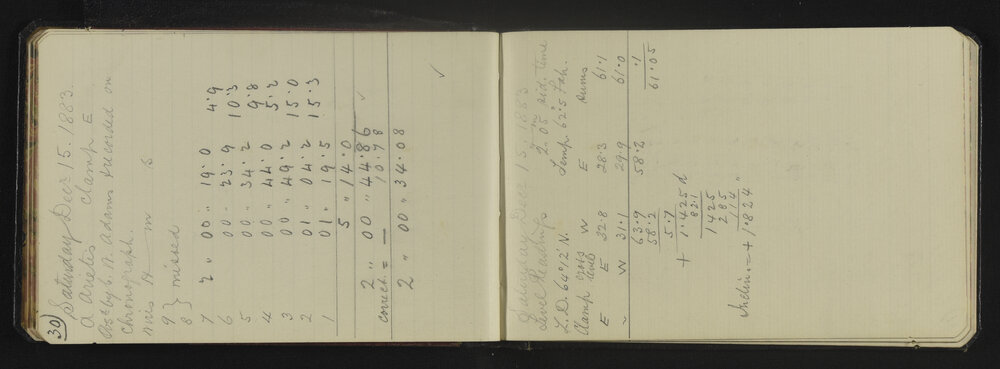 30
Saturday Dec 15. 1883.
α Arietis clamp E
Obs by C. A. Adams & recorded on
Chronograph.
Wire H m s
9 } missed
8
7 2 00 „ 19.0 4.9
6 00 „ 23.9 10.3
5 00 „ 34.2 9.8
4 00 „ 44.0 5.2
3 00 „ 49.2 15.0
2 01 „ 04.2 15.3
1 01 „ 19.5
5 „ 14.0
2 „ 00 „ 44.86 ✓
correct. = — 10.78
2 „ 00 „ 34.08
✓
Saturday Dec 15. 1883
Level Reading 2.05 sid. time
Z.D. 64°12' N. Temp. 62°.5 Fah.
Clamp cross level W E Sums
E E 32.8 28.3 61.1
" W 31.1 29.9 61.0
63.9 58.2 .1
58.2 61.05
5.7
+ 1.425 d
821
1425
285
114
Inclin. = + 1.824 "